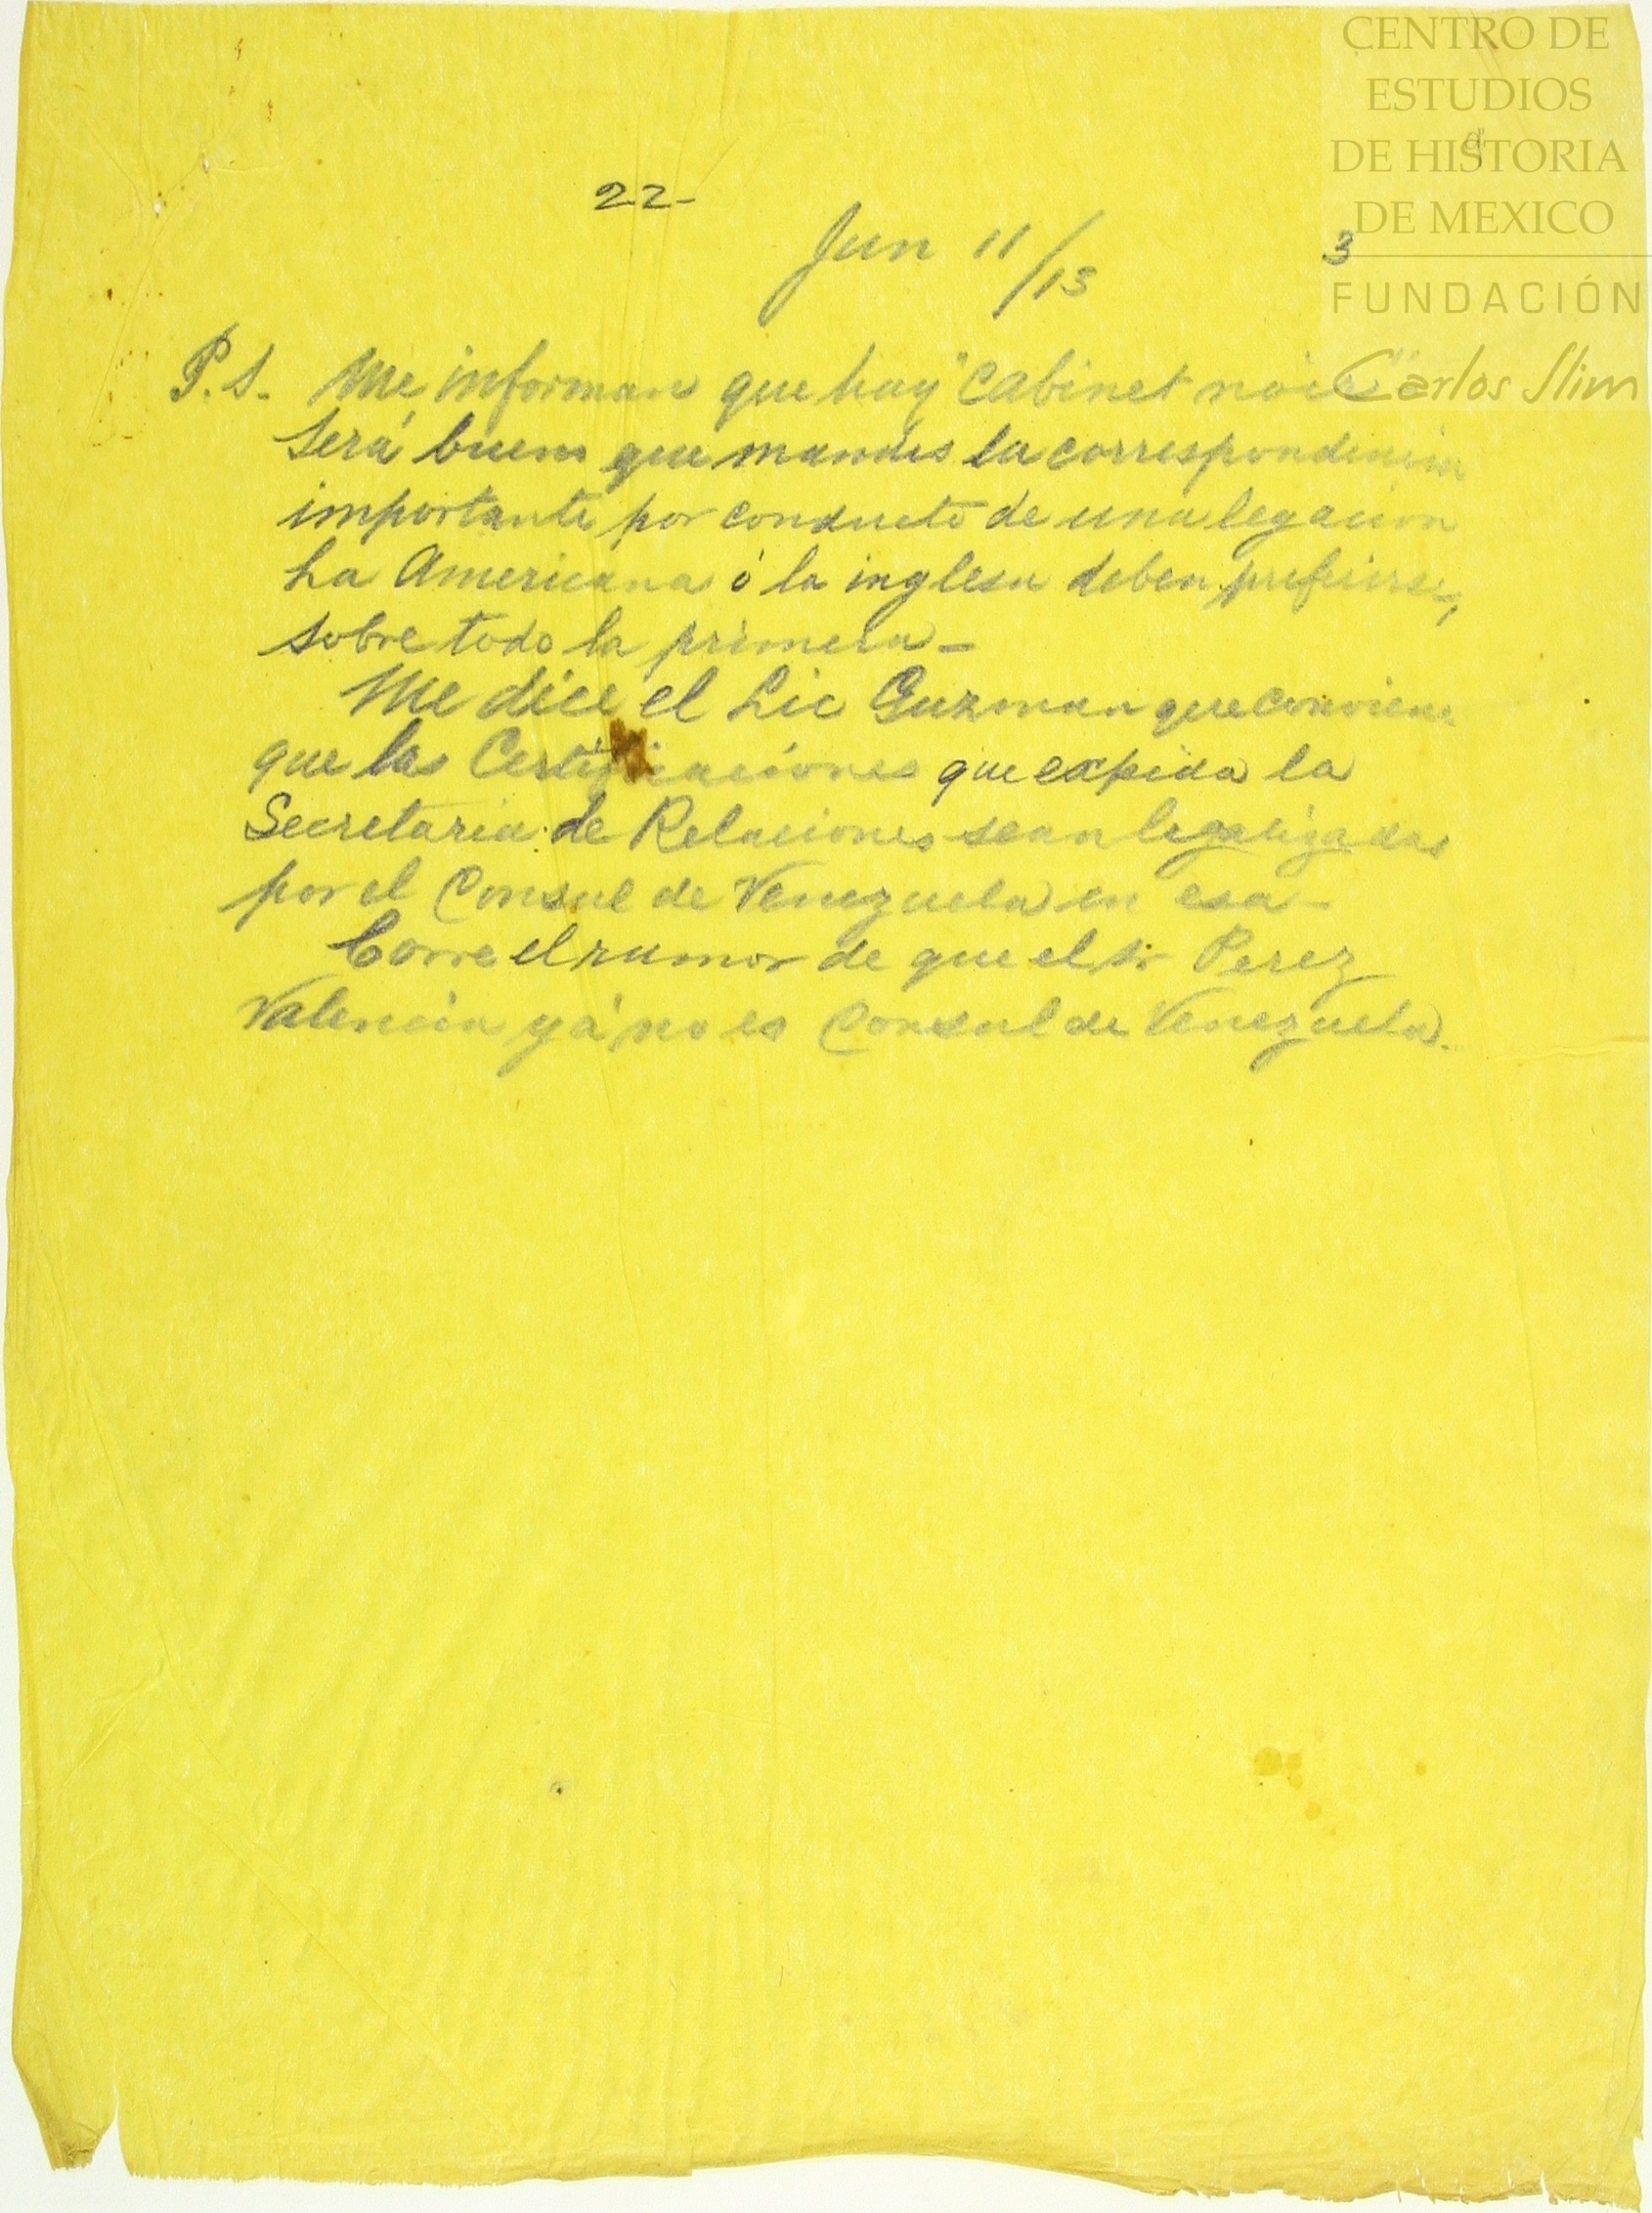 CENTRO DE
ESTUDIOS
DE HISTORIA
DE MEXICO
FUNDACIÓN
Carlos Slim
22-
3
Jun 11/13
P.S. Me informan que hay "Cabinet noir"
será bueno que mandes la correspondencia
importante por conducto de una legacion
La Americana ó la inglesa deben preferirse,
sobre todo la primera-
Me dice el Lic Guzman que conviene
que las Certificaciones que expida la
Secretaria de Relaciones sean legalizadas
por el Consul de Venezuela en esa-
Corre el rumor de que el Sr Perez
Valencia yá no es Consul de Venezuela.